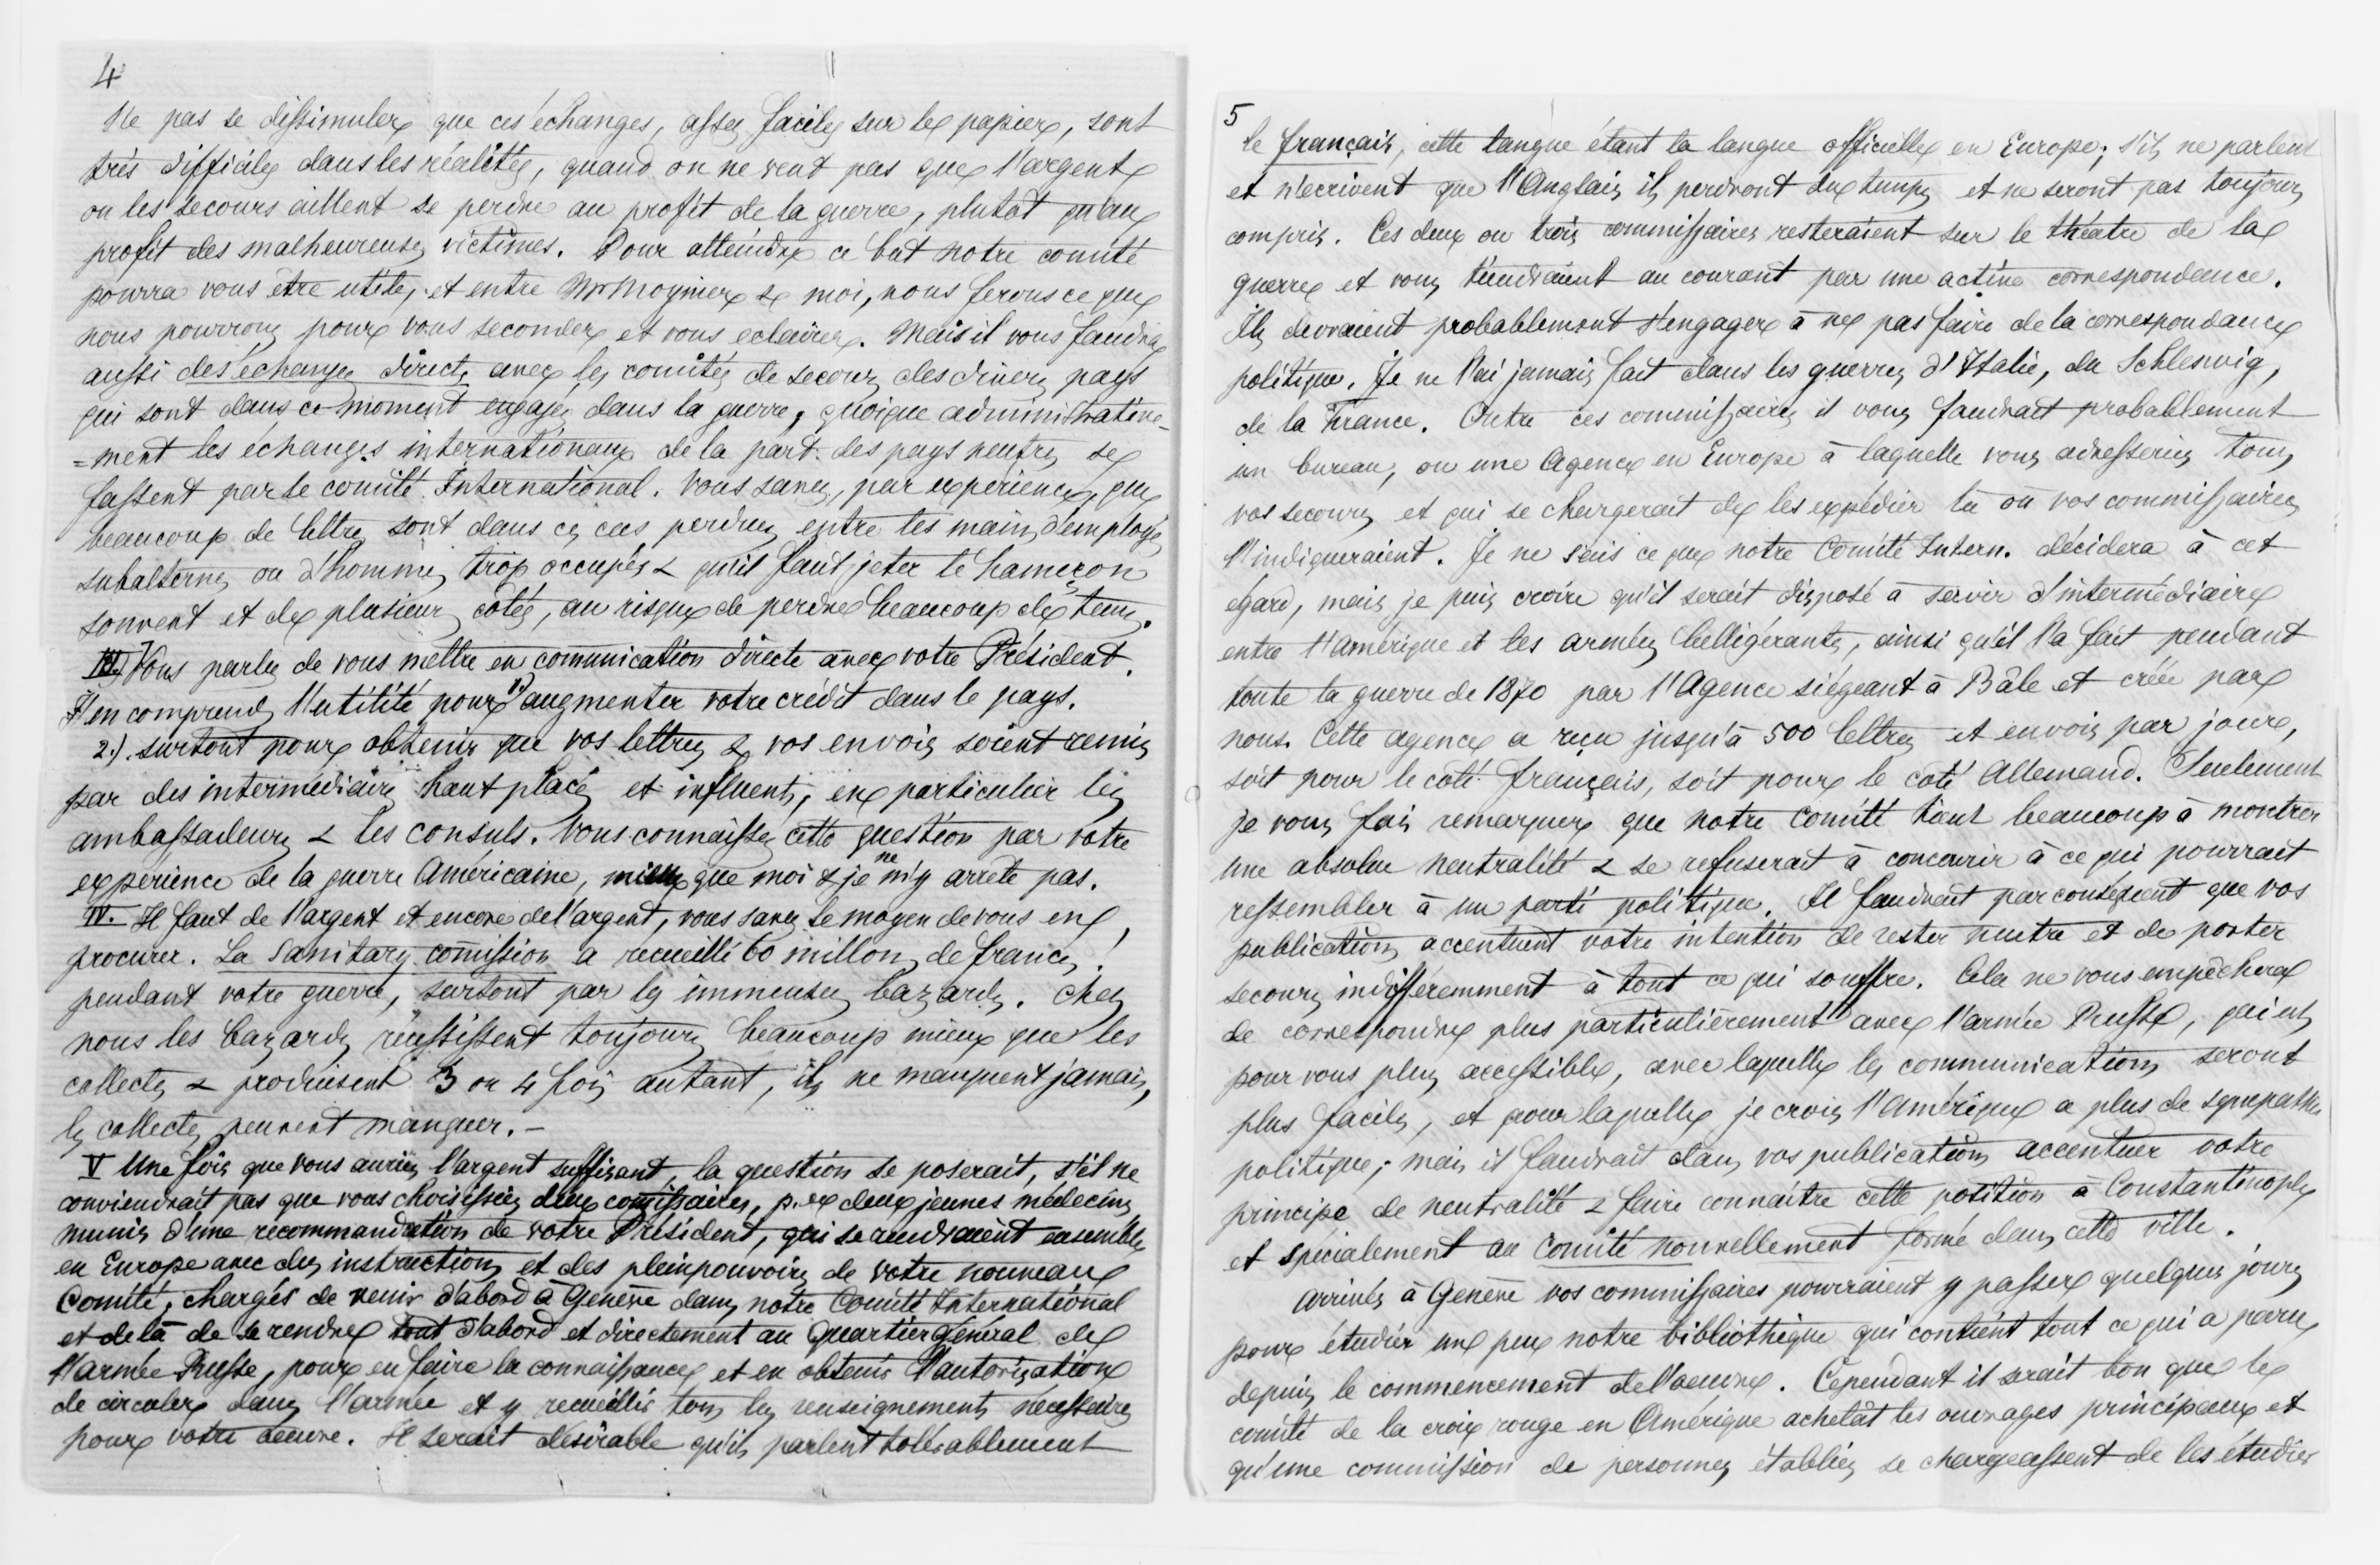 4
Ne pas se dissimuler que ces échanges, assez faciles sur le papier, sont
très difficiles dans les réalités, quand on ne veut pas que l'argent
ou les secours aillent se perdre au profit de la guerre, plutôt qu'au
profit des malheureuses victimes. Pour atteindre ce but notre comité
pourra vous être utile, et entre Mr Moynier & moi, nous ferons ce que
nous pourrons pour vous seconder et vous eclairer. Mais il vous faudra
aussi des échanges directs avec les comités de secours des divers pays
qui sont dans ce moment engagés dans la guerre, quoique administrative-
=ment les échanges internationaux de la part des pays neutres se
fassent par le comité International. Vous savez, par expérience, que
beaucoup de lettres sont dans ces cas perdues entre les mains d'employés
subalternes ou d'hommes trop occupés & qu'il faut jeter le hameçon
souvent et de plusieurs cotés, au risque de perdre beaucoup de tems.
III.) Vous parlez de vous mettre en comunication directe avec votre Président.
J'en comprends l'utilité pour 1.) augmenter votre crédit dans le pays.
2.) surtout pour obtenir que vos lettres & vos envois soient remis
par des intermédiaires haut placés et influents, en particulier les
ambassadeurs & les consuls. Vous connaissez cette question par votre
expérience de la guerre Américaine, mieux que moi & je ne m'y arrête pas.
IV. Il faut de l'argent et encore de l'argent, vous savez le moyen de vous en
procurer. La Sanitary comission a recueilli 60 millons de francs,
pendant votre guerre, surtout par les immenses bazards. Chez
nous les bazards réussissent toujours beaucoup mieux que les
collectes & produisent 3 ou 4 fois autant, ils ne manquent jamais,
les collectes peuvent manquer. –
V Une fois que vous auriez l'argent suffisant, la question se poserait, s'il ne
conviendrait pas que vous choisissiez deux comissaires, p. ex deux jeunes médecins
munis d'une recommandation de votre Président, qui se rendraient ensemble
en Europe avec des instructions et des pleinpouvoirs de votre nouveau
Comité, chargés de venir d'abord à Genève dans notre Comité International
et de là de se rendre tout d'abord et directement au Quartier général de
l'armée Russe, pour en faire la connaissance et en obtenir l'autorisation
de circuler dans l'armée et y recueillir tous les renseignements nécessaires
pour votre oeuvre. Il serait désirable qu'ils parlent tolérablement
5
le français, cette langue étant la langue officielle en Europe; s'ils ne parlent
et n'écrivent que l'Anglais ils perdront du temps et ne seront pas toujours
compris. Ces deux ou trois commissaires resteraient sur le théatre de la
guerre et vous tiendraient au courant par une active correspondance.
Ils devraient probablement s'engager à ne pas faire de la correspondance
politique. Je ne l'ai jamais fait dans les guerres d'Italie, du Schleswig,
de la France. Outre ces commissaires il vous faudrait probablement
un bureau, ou une Agence en Europe à laquelle vous adresseriez tous
vos secours et qui se chargerait de les expédier là où vos commissaires
l'indiqueraient. Je ne sais ce que notre Comité Intern. décidera à cet
égard, mais je puis croire qu'il serait disposé à servir d'intermédiaire
entre l'Amérique et les armées belligérantes, ainsi qu'il l'a fait pendant
toute la guerre de 1870 par l'Agence siégeant à Bâle et créée par
nous. Cette agence a reçu jusqu'à 500 lettres et envois par jour,
soit pour le coté français, soit pour le coté Allemand. Seulement
je vous fais remarquer que notre Comité tient beaucoup à montrer
une absolue neutralité & se refuserait à concourir à ce qui pourrait
ressembler à un parti politique. Il faudrait par conséquent que vos
publications accentuent votre intention de rester neutre et de porter
secours indifféremment à tout ce qui souffre. Cela ne vous empêchera
de correspondre plus particulièrement avec l'armée Russe, qui est
pour vous plus accessible, avec laquelle les communications seront
plus faciles, et pour laquelle je crois l'Amérique a plus de sympathie
politique; mais il faudrait dans vos publications accentuer votre
principe de neutralité & faire connaître cette position à Constantinople
et spécialement au Comité nouvellement formé dans cette ville.
Arrivés à Genève vos commissaires pourraient y passer quelques jours
pour étudier un peu notre bibliothèque qui contient tout ce qui a paru
depuis le commencement de l'oeuvre. Cependant il serait bon que le
comité de la croix rouge en Amérique achetât les ouvrages principaux et
qu'une commission de personnes établies se chargeassent de les étudier